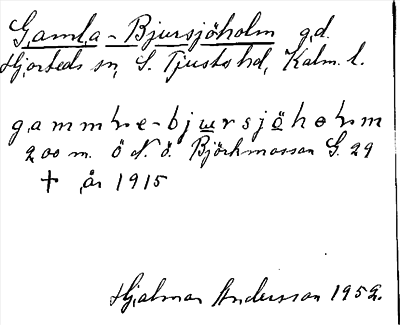 Gamla-Bjursjöholm gd.
Hjorteds sn, S. Tjusts hd, Kalm. l.
gammhe-bjursjöhohm
200 m. ö N. ö. Björkmossan G. 29
† år 1915
Hjalmar Andersson 1952.